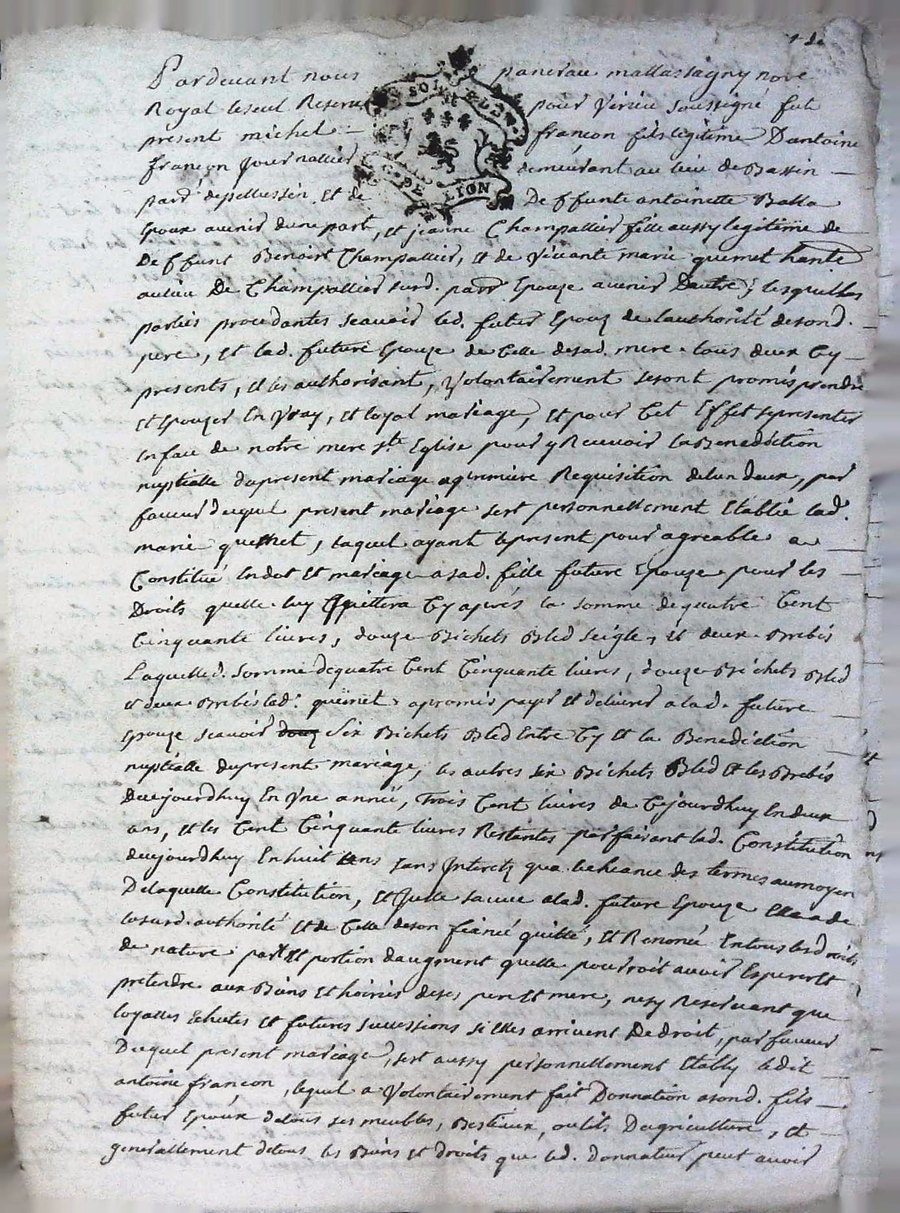 Pardevant nous pancrau mallassagny nore
Royal le seul Reservé pour Virieu soussigné fut
present michel françon fils legitime Dantoine
françon Journallier demeurant au lieu de Bassin
parr. de pellussin, et de Deffunte antoinette Balla
Epoux avenir dune part, et jeanne Champallier fille aussy legitime de
Deffunt Benoist Champallier, et de vivante marie quemet
au lieu De Champallier surd. parr. Epouze avenir Dautre; lesquelles
parties procedantes scavoir led. futur Epoux de lauthorité de sond.
pere, et lad. future Epouze de Celle de sad. mere tous deux Cy
presents, et les authorisant, Volontairement se sont promis prendre
et Epouzer En Vray, et loyal mariage, et pour Cet Effet se presenter
en face de notre mere ste Eglise pour y Recevoir la Benediction
nuptialle du present mariage a premiere Requisition de lun deux, par
faveur duquel present mariage sest personnellement Etablie lad.
marie quemet, laquel ayant le present pour agreable a
Constitué En dot et mariage a sad. fille future Epouze pour les
Droits quelle luy quittera Cy aprés la somme de quatre Cent
Cinquante livres, douze Bichets Bled seigle, et deux Brebis
Laquelled. somme de quatre Cent Cinquante livres, douze Bichets Bled
et deux Brebis lad. quemet a promis payer et delivrer a lad. future
Epouze scavoir douz six Bichets Bled Entre Cy et la Benediction
nuptialle du present mariage, les autres six Bichets Bled et les Brebis
Daujourdhuy En Vne année, Trois Cent livres de Cejourdhuy En deux
ans, et les Cent Cinquante livres Restantes parfaisant lad. Constitution
daujourdhuy En huit ans sans Interets qua lecheance des termes au moyen
De laquelle Constitution, et Icelle sauve a lad. future Epouze Elle a de
lesusd. authorité et de Celle de son fiancé quitté, et Renoncé En tous les droits
de nature part et portion daugment quelle pourroit avoir Esperer et
pretendre aux Biens et hoiries de ses pere et mere, nesy Reservant que
loyalles Echutes et futures successions si Elles arrivent De droit, par faveur
Duquel present mariage, sest aussy personnellement Etably ledit
antoine françon, lequel a Volontairement fait Donnation a sond. fils
futur Epoux de tous ses meubles, Bestiaux, outils Dagriculture, et
generallement de tous les Biens et droits que led. donnateur peut avoir